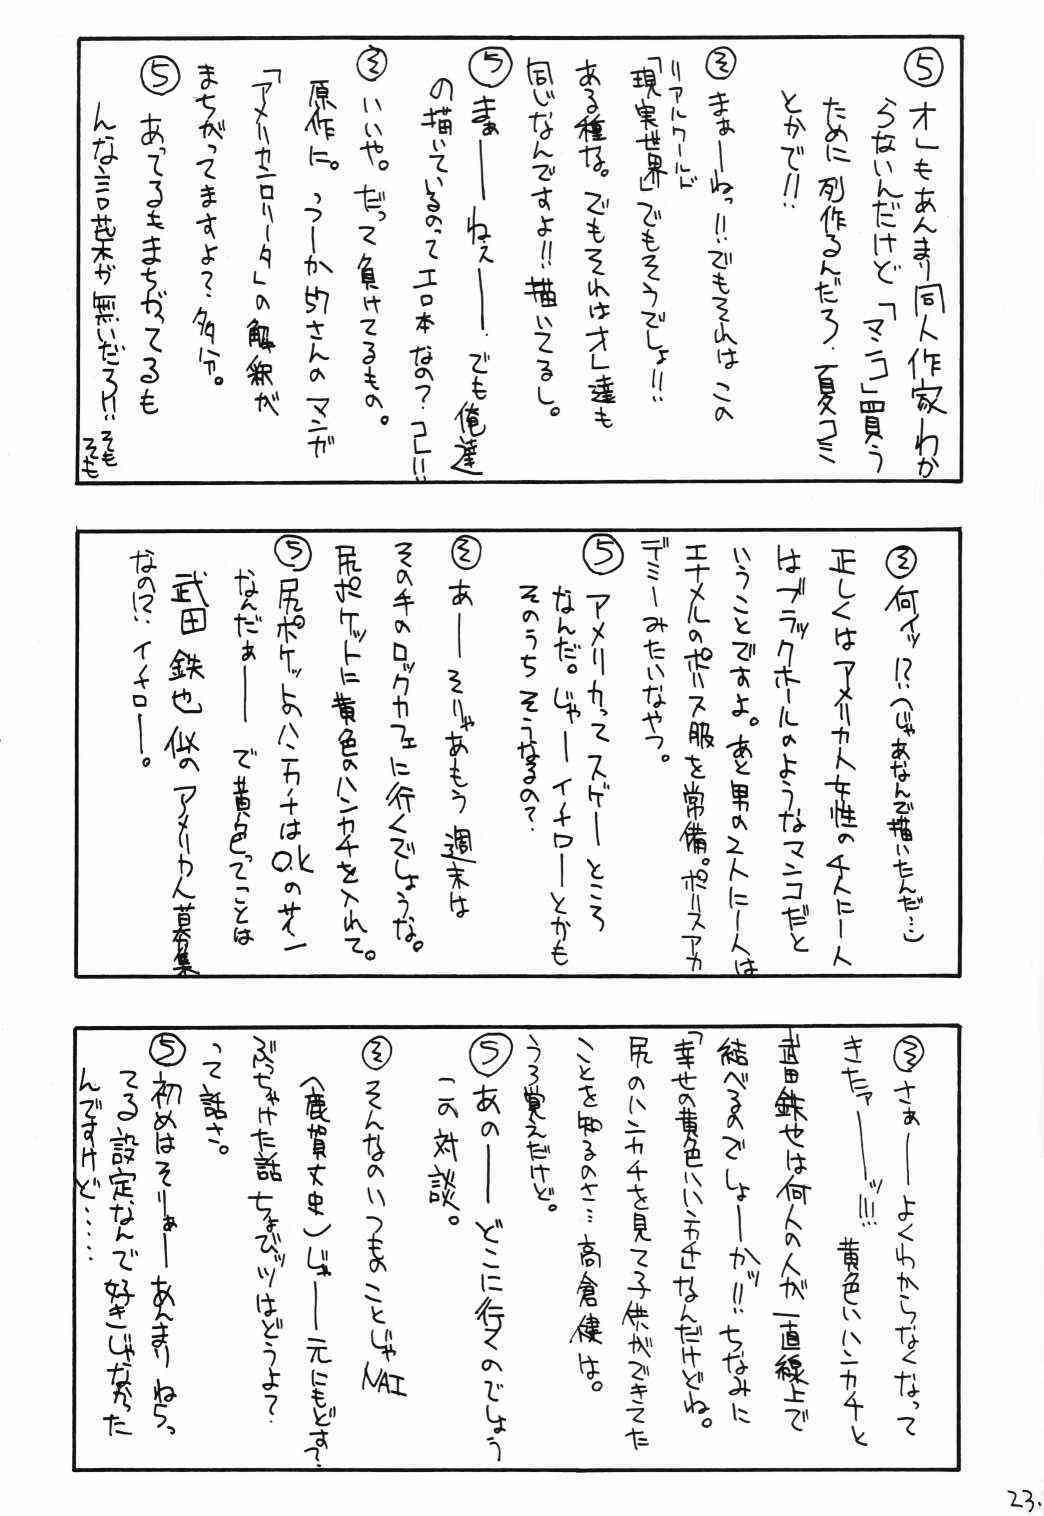 ⑤オレもあんまり同人作家しか
らないんだけど「マンコ」買う
ために列作るんだろ.夏コミ
とかで!!
㋲まぁーねっ!!でもそれはこの
リアルワールド
「現実世界」でもそうでしょ!!
ある種な。でもそれはオレ達も
同じなんですよ!!描いてるし。
⑤まぁーーねぇーー.でも俺達
の描いているのってエロ本なの?コレ!!
㋲いいや。だって負けてるもの。
原作に。つーか57さんのマンガ
「アメリカンロリータ」の解釈が
まちがってますよ?多分。
⑤あってるもまちがってるも
んな言葉が無いだろ!!
そも
そも
㋲何ィッ!?(じゃあなんで描いたんだ…)
正しくはアメリカ人女性の4人に一人
はブラックホールのようなマンコだと
いうことですよ。あと男の2人に一人は
エナメルのポリス服を常備。ポリスアカ
デミーみたいなやつ。
⑤アメリカってスゲーところ
なんだ。じゃーイチローとかも
そのうちそうなるの?
㋲あーーそりゃあもう週末は
その手のロックカフェに行くでしょうな。
尻ポケットに黄色のハンカチを入れて。
⑤尻ポケットのハンカチはO.Kのサイン
なんだぁーーで黄色ってことは
武田鉄也似のアメリカ人募集
なの!?イチロー。
㋲さぁーーよくわからなくなって
きたァーーッ!!!黄色いハンカチと
武田鉄也は何人の人が一直線上で
結べるのでしょーかッ!!ちなみに
「幸せの黄色いハンカチ」なんだけどね。
尻のハンカチを見て子供ができてた
ことを知るのさ…高倉健は。
うろ覚えだけど。
⑤あのーーどこに行くのでしょう
この対談。
㋲そんなのいつものことじゃNAI
(鹿賀丈史)じゃーー元にもどす?
ぶっちゃけた話ちょびッツはどうよ?
って話さ。
⑤初めはそりぁーあんまりねらっ
てる設定なんで好きじゃなかった
んですけど……
23.